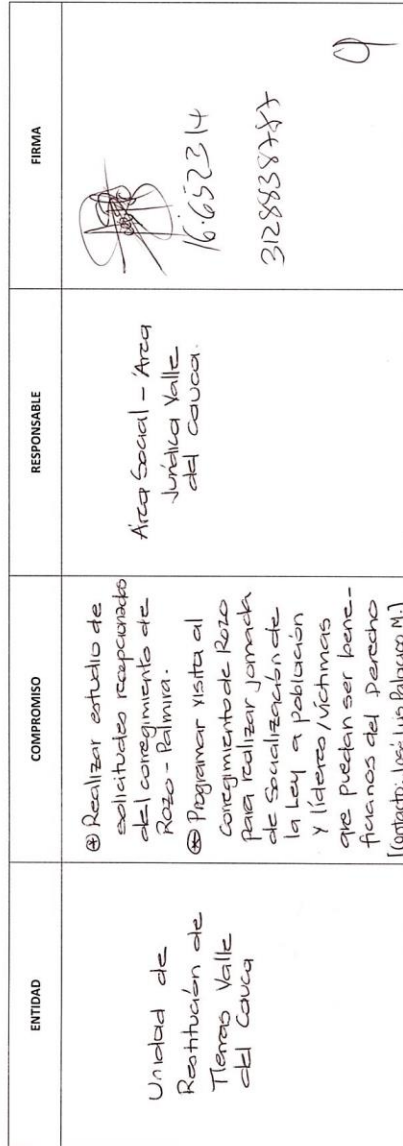 ENTIDAD
COMPROMISO
RESPONSABLE
FIRMA
Unidad de
Restitución de
Tierras Valle
del Cauca
⊛ Realizar estudio de
solicitudes recepcionados
del corregimiento de
Rozo - Palmira.
⊛ Programar visita al
corregimiento de Rozo
para realizar jornada
de Socialización de
la Ley a población
y líderes/víctimas
que puedan ser bene-
ficiarios del Derecho
[Contacto: José Luis M.]
Área Social - Área
Jurídica Valle
del Cauca.
16.652314
3128838787